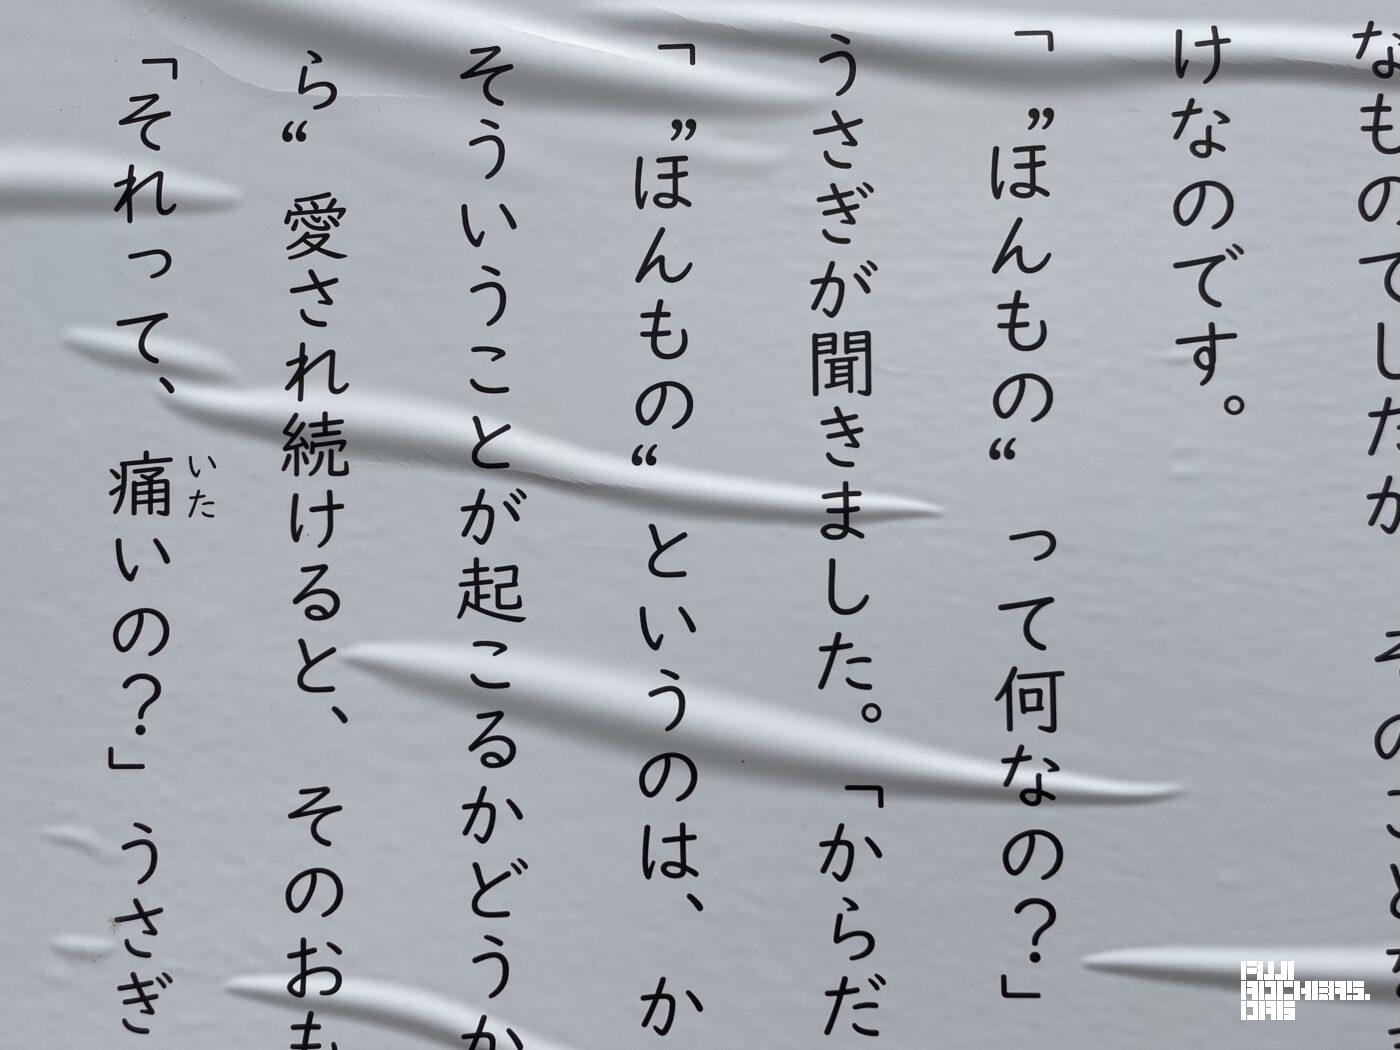 なものでしたが、そのことを
けなのです。
「〟ほんもの〝 って何なの？」
うさぎが聞きました。「からだ
「〟ほんもの〝 というのは、か
そういうことが起こるかどうか
ら〝 愛され続けると、そのおも
「それって、痛いの？」うさぎ
いた
FUJI
ROCKERS.
ORG